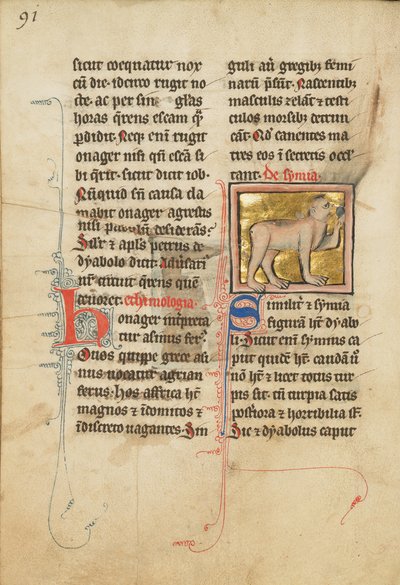 91
sicut coequatur nox
cū die. ideirco rugit no
cte. ac per sing̅las
horas q̄rens escam q̄
p̄didit. Neq̨ eni᷒ rugit
onager nisi qn̄ escā si
bi q̄rit. sicut dicit iob.
Nūquid sn̄ causa cla
mabit onager agrestis
nisi pabulum desiderās.
Sil'r ⁊ ap̄ls petrus de
dẏabolo dicit. Aduersari᷒
nr̄ circuit q̄rens quē
deuoret. ethimologia
Honager int̄preta
tur asinus fer᷒.
Quos quippe grece asi
nus uocatur agrian
ferus. hos affrica ht̄
magnos ⁊ īdomitos ⁊
ī deserto uagantes. Sin
guli au̅ gregib᷒ femi
narū p̄sūt. Nascentib᷒
masculis ⁊ zelāt ⁊ testi
culos morsib᷒ detrun
cāt. Qd̄ cauentes ma
tres eos ī secretis occul
tant. De symia.
Similit̄ ⁊ sẏmia
figurā ht̄ dẏab
li. Sicut eni᷒ sẏmius ca
put quidē ht̄ caudā ū
nō ht̄ ⁊ licet totus tur
pis sit. tn̄ turpia satis
post̄iora ⁊ horribilia st̄.
Sic ⁊ dẏabolus caput